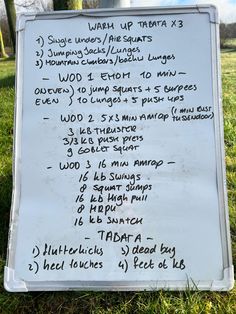 WARM UP TABATA X3
1) Single unders/AIR SQUATS
2) Jumping Jacks/Lunges
3) MOUNTAIN Climbers/backw lunges
- WOD 1 EMOM 10 min -
ON EVEN) 10 jump SQUATS + 5 Burpees
EVEN) 10 Lunges + 5 push ups
- WOD 2 5x3 min AMRAP - (1 min RUST
TUSSENDOOR)
3 KB THRUSTER
3/3 KB push press
9 GOBLET SQUAT
- WOD 3 16 min AMRAP -
16 kb SWINGS
8 SQUAT jumps
16 kb High pull
8 HRPU
16 kb SNATCH
- TABATA -
1) flutterkicks 3) dead bug
2) heel touches 4) feet ot kB